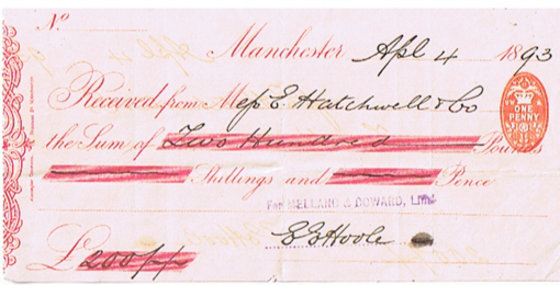 No.
Manchester Apl 4 1893
Received from Mess E. Hatchwell & Co
the Sum of Two Hundred Pounds
Shillings and Pence
ONE PENNY
For MELLAND & COWARD, Limd
E E Hoole
£200//